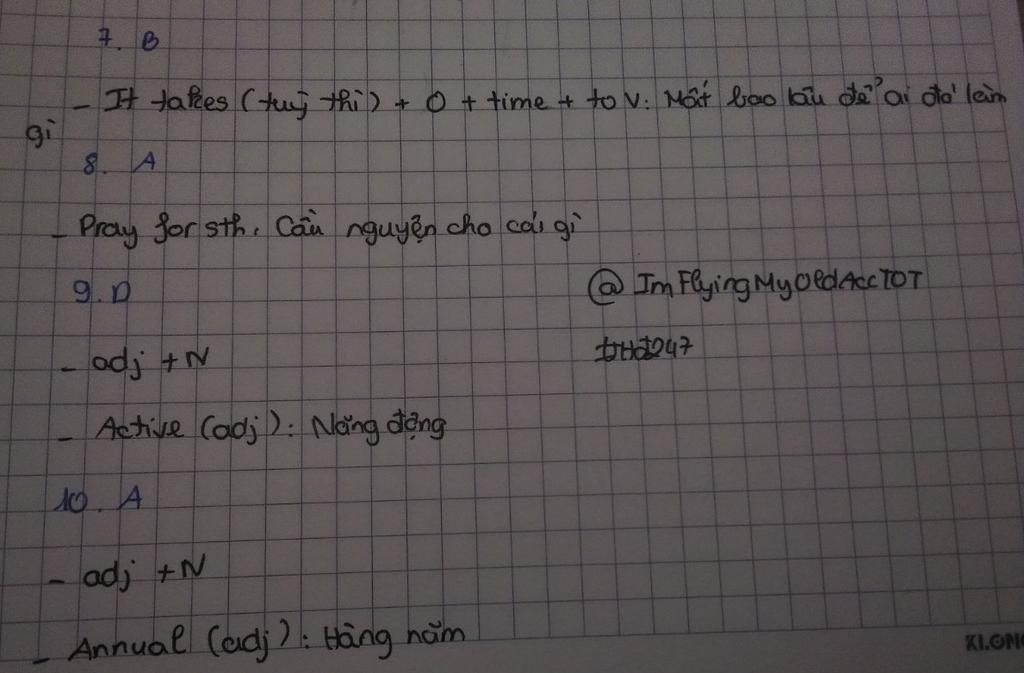 7. B
- It takes (tuỳ thì) + O + time + to V: Mất bao lâu để ai đó làm
gì
8. A
- Pray for sth. Cầu nguyện cho cái gì
9. D
@ ImFlyingMyOldAccTOT
- adj + N
- Active (adj): Năng động
10. A
- adj + N
- Annual (adj): Hàng năm
KLONG